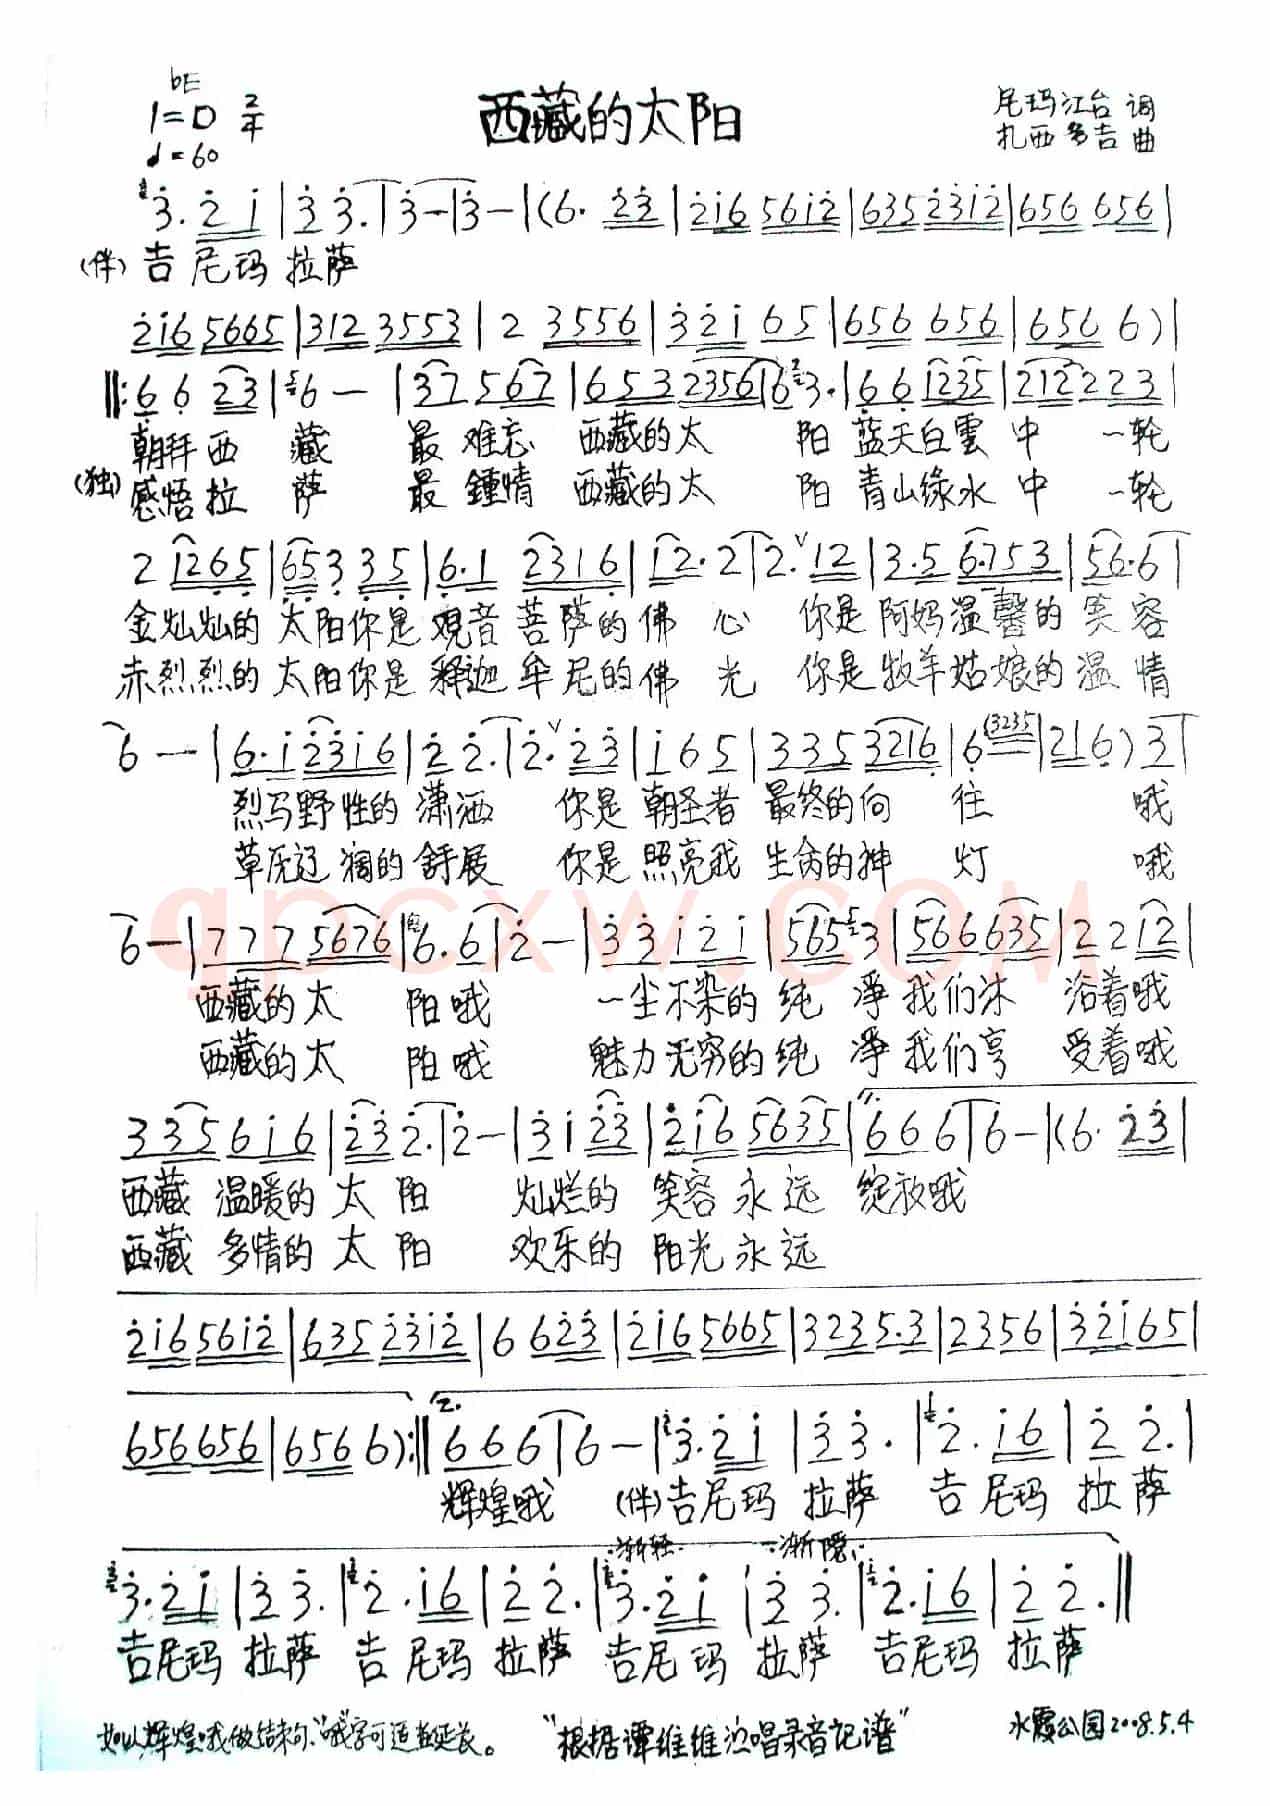 bE
1=D 2/4
♩=60
西藏的太阳
尼玛江台 词
扎西多吉 曲
3. 2 1 | 3 3. | 3 - | 3 - | (6. 23 | 216 5612 | 635 2312 | 656 656 |
(伴) 吉 尼玛 拉萨
216 5665 | 312 3553 | 2 3556 | 321 65 | 656 656 | 656 6) |
||: 6 6 23 | 6 - | 37 567 | 653 2356 | 6 3. | 66 1235 | 212 223 |
朝拜西 藏 最 难忘 西藏的太 阳 蓝天白雲 中 一轮
(独) 感悟拉 萨 最 鍾情 西藏的太 阳 青山绿水 中 一轮
2 1265 | 653 35 | 6.1 2316 | 12. 2 | 2. 12 | 3.5 6.753 | 56. 6 |
金灿灿的 太阳你是 观音 菩萨的佛 心 你是 阿妈温馨的 笑 容
赤烈烈的 太阳你是 释迦 牟尼的佛 光 你是 牧羊姑娘的 温 情
6 - | 6.1 2316 | 2 2. | 2. 23 | 1 6 5 | 335 3216 | 6 (3235 | 216) 3 |
烈马野性的 潇洒 你是 朝圣者 最终的向 往 哦
草原辽阔的 舒展 你是 照亮我 生命的神 灯 哦
6 - | 777 5676 | 6. 6 | 2 - | 33 121 | 565 3 | 566 635 | 22 12 |
西藏的太 阳哦 一尘不染的 纯 淨 我们沐 浴着哦
西藏的太 阳哦 魅力无穷的 纯 淨 我们享 受着哦
335 616 | 23 2. | 2 - | 31 23 | 216 5635 | 1. 666 | 6 - | (6. 23 |
西藏 温暖的 太 阳 灿烂的 笑容 永 远 绽放哦
西藏 多情的 太 阳 欢乐的 阳光永 远
216 5612 | 635 2312 | 6 623 | 216 5665 | 323 5.3 | 2356 | 321 65 |
656 656 | 656 6) :|| 2. 666 | 6 - | 3. 21 | 3 3. | 2. 16 | 2 2. |
辉煌哦 (伴) 吉尼玛 拉萨 吉 尼玛 拉 萨
渐轻 渐隐
3. 21 | 3 3. | 2. 16 | 2 2. | 3. 21 | 3 3. | 2. 16 | 2 2. ||
吉尼玛 拉萨 吉 尼玛 拉萨 吉尼玛 拉萨 吉尼玛 拉萨
如以辉煌哦做结束句."哦"字可适当延长。
"根据谭维维演唱录音记谱"
水霞公园2008.5.4
qpcxw.com